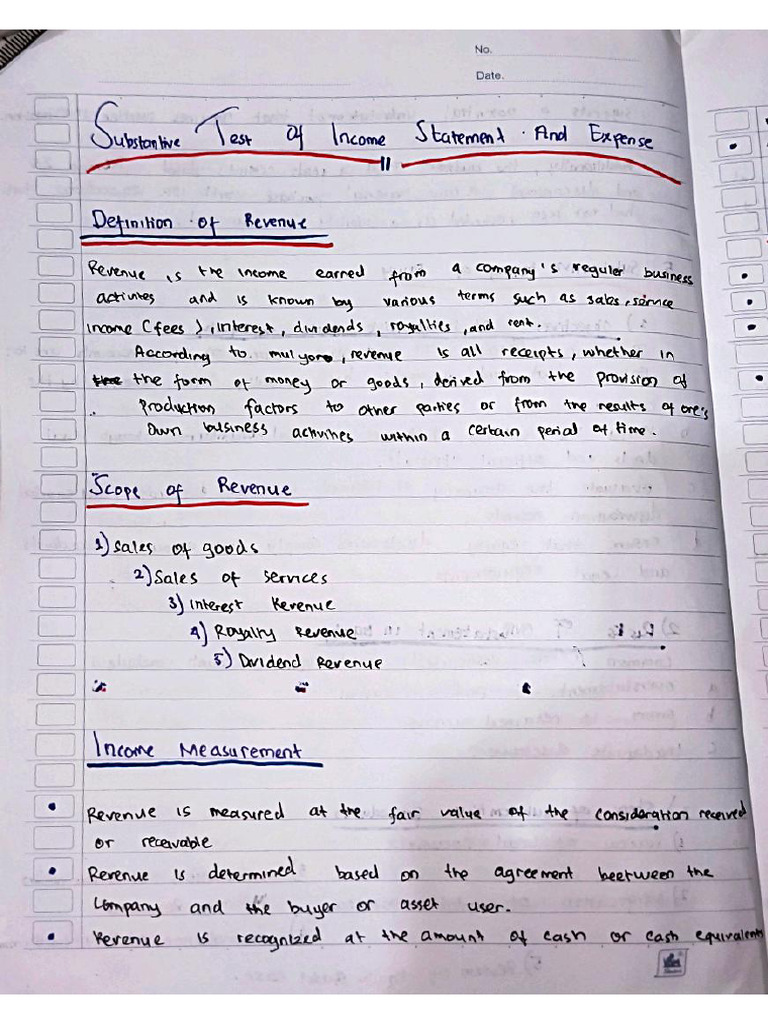 No.
Date.
Substantive Test Of Income Statement And Expense
Definition of Revenue
Revenue is the income earned from a company's reguler business
activites and is known by various terms such as sales, service
income (fees), interest, dividends, royalties, and rent.
According to mulyono, revenue is all receipts, whether in
the form of money or goods, derived from the provision of
production factors to other parties or from the results of one's
own business activities within a certain period of time.
Scope of Revenue
1) Sales of goods
2) Sales of services
3) Interest Revenue
4) Royalty Revenue
5) Dividend Revenue
Income Measurement
• Revenue is measured at the fair value of the consideration received
or receivable
• Revenue is determined based on the agreement beetween the
Company and the buyer or asset user.
• Revenue is recognized at the amount of cash or cash equivalents